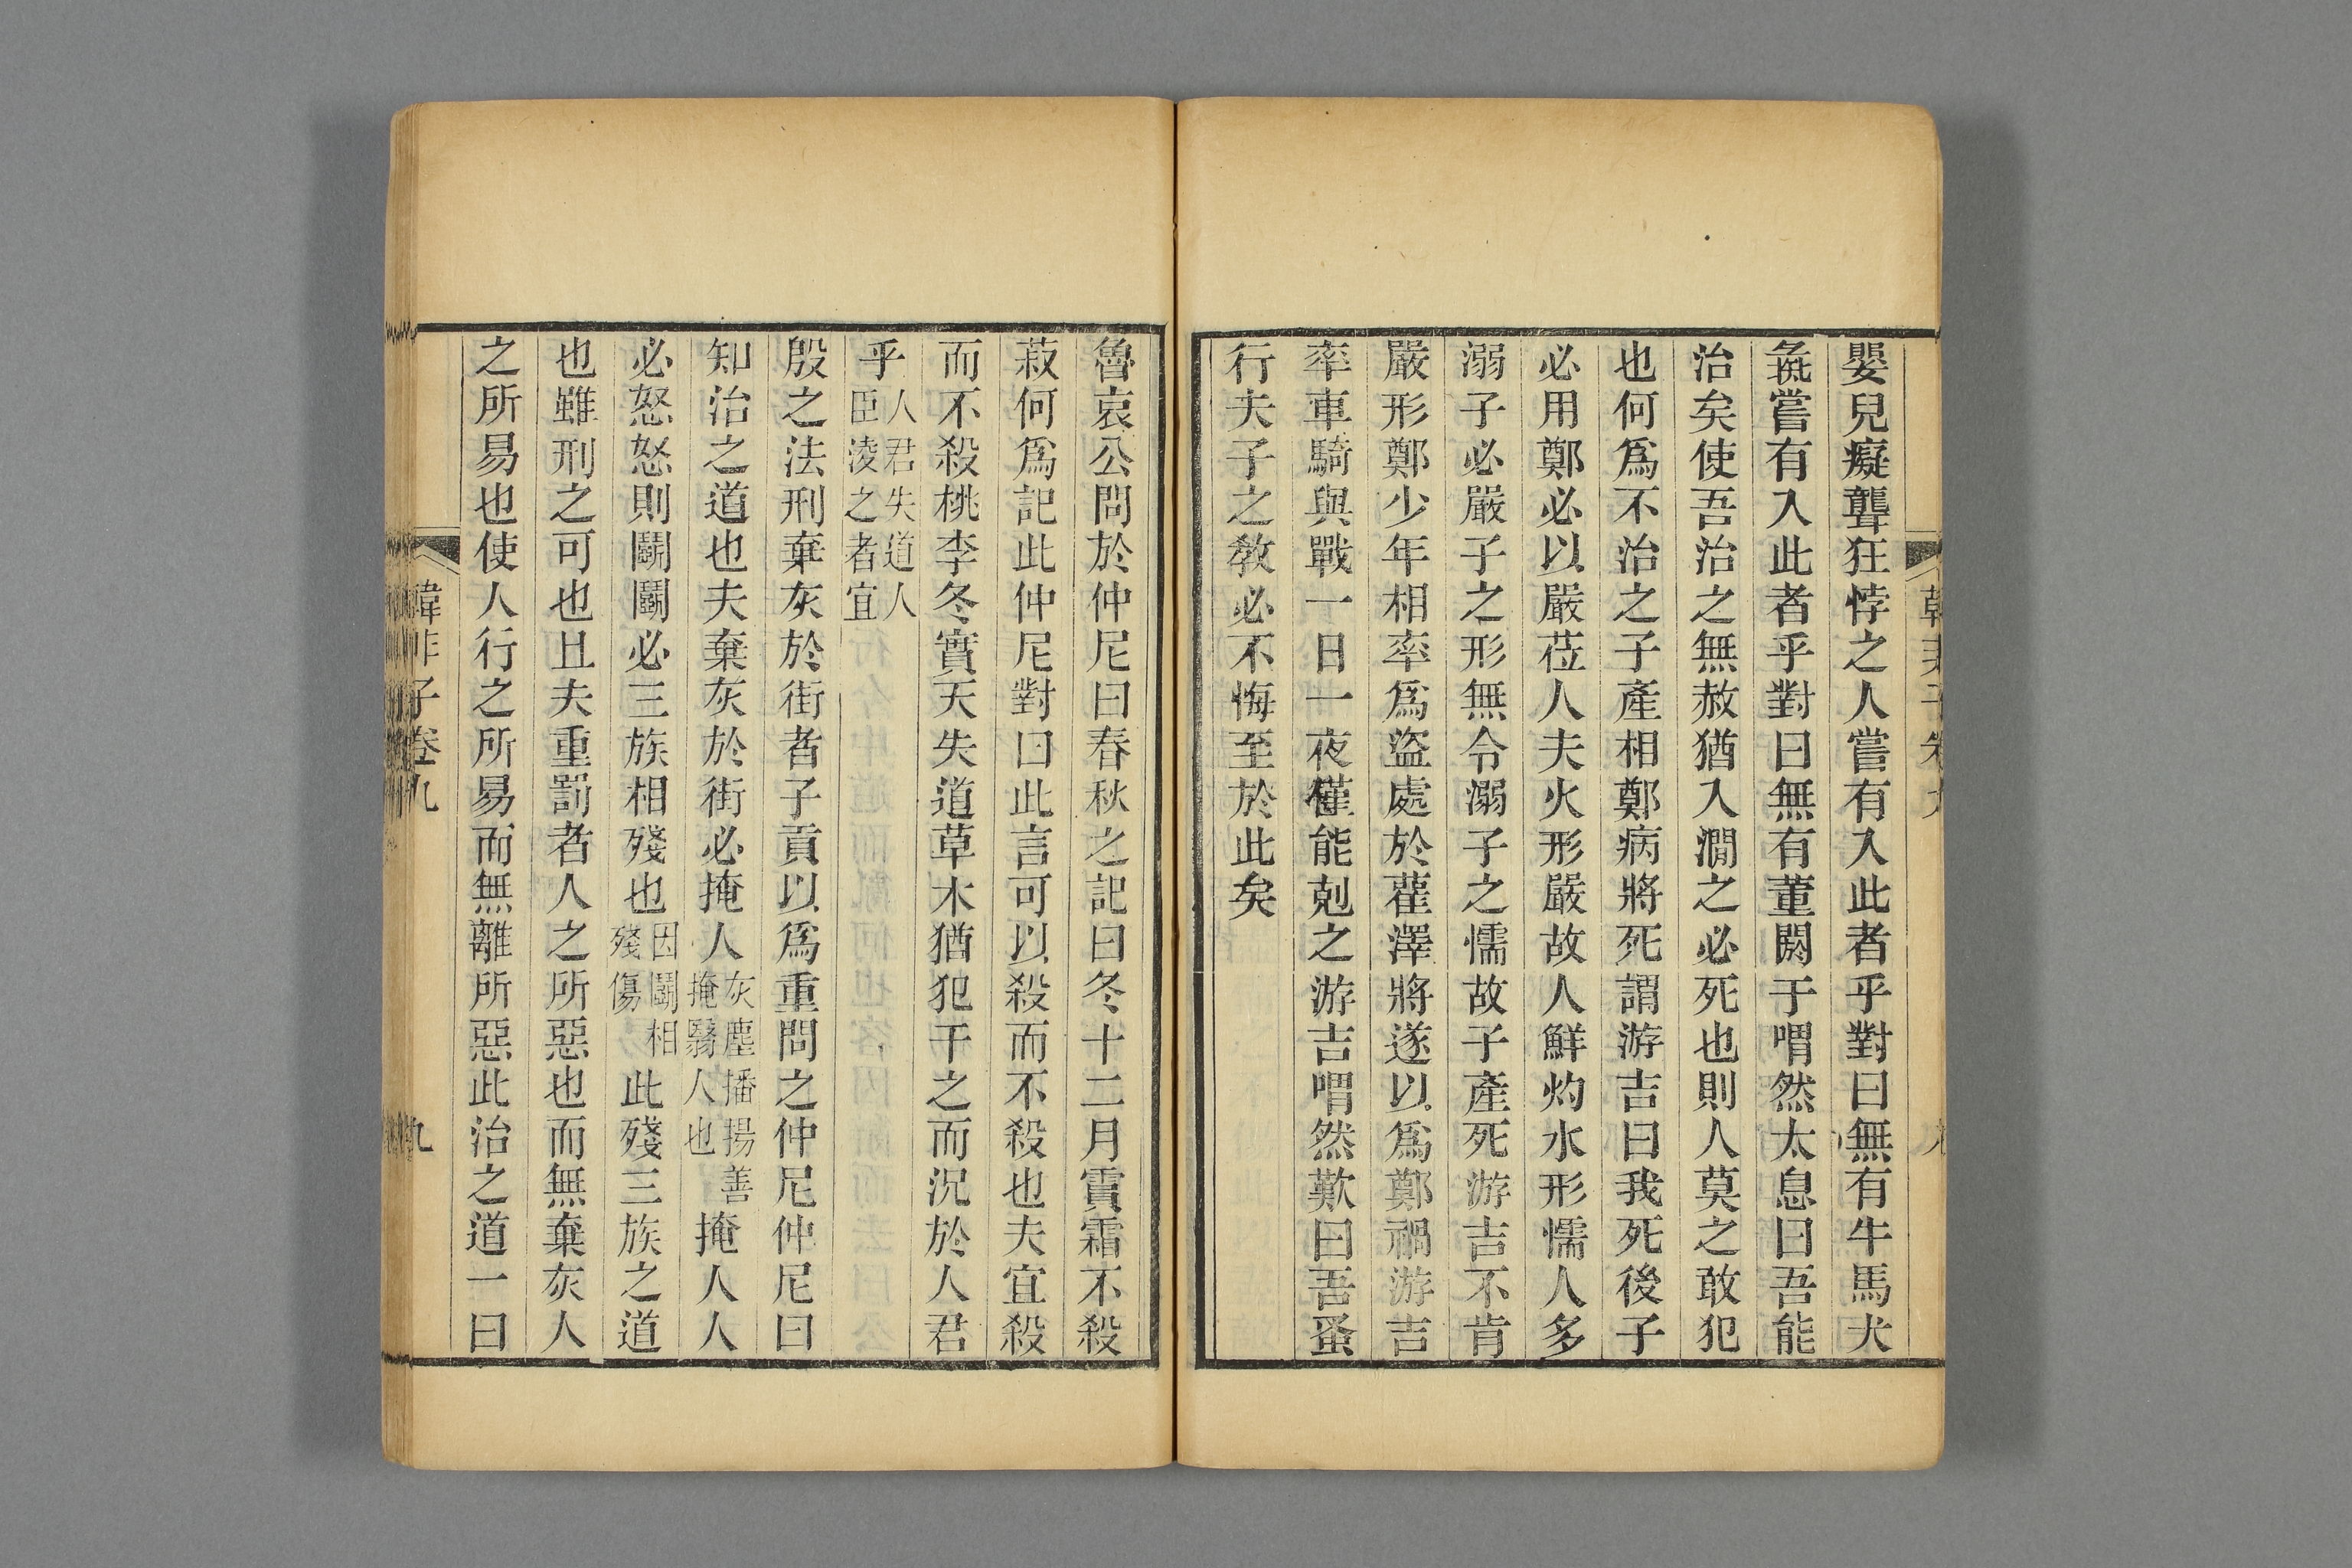 嬰兒癡聾狂悖之人嘗有入此者乎對曰無有牛馬犬
彘嘗有入此者乎對曰無有董閼于喟然太息曰吾能
治矣使吾治之無赦猶入澗之必死也則人莫之敢犯
也何爲不治之子產相鄭病將死謂游吉曰我死後子
必用鄭必以嚴莅人夫火形嚴故人鮮灼水形懦人多
溺子必嚴子之形無令溺子之懦故子產死游吉不肯
嚴形鄭少年相率爲盜處於雚澤將遂以爲鄭禍游吉
率車騎與戰一日一夜僅能剋之游吉喟然歎曰吾蚤
行夫子之教必不悔至於此矣
魯哀公問於仲尼曰春秋之記曰冬十二月霣霜不殺
菽何爲記此仲尼對曰此言可以殺而不殺也夫宜殺
而不殺桃李冬實天失道草木猶犯干之而況於人君
乎人君失道人臣淩之者宜
殷之法刑棄灰於街者子貢以爲重問之仲尼仲尼曰
知治之道也夫棄灰於街必掩人灰塵播揚善掩翳人也掩人人
必怒怒則鬭鬭必三族相殘也因鬭相殘傷此殘三族之道
也雖刑之可也且夫重罰者人之所惡也而無棄灰人
之所易也使人行之所易而無離所惡此治之道一曰
韓非子卷九
九